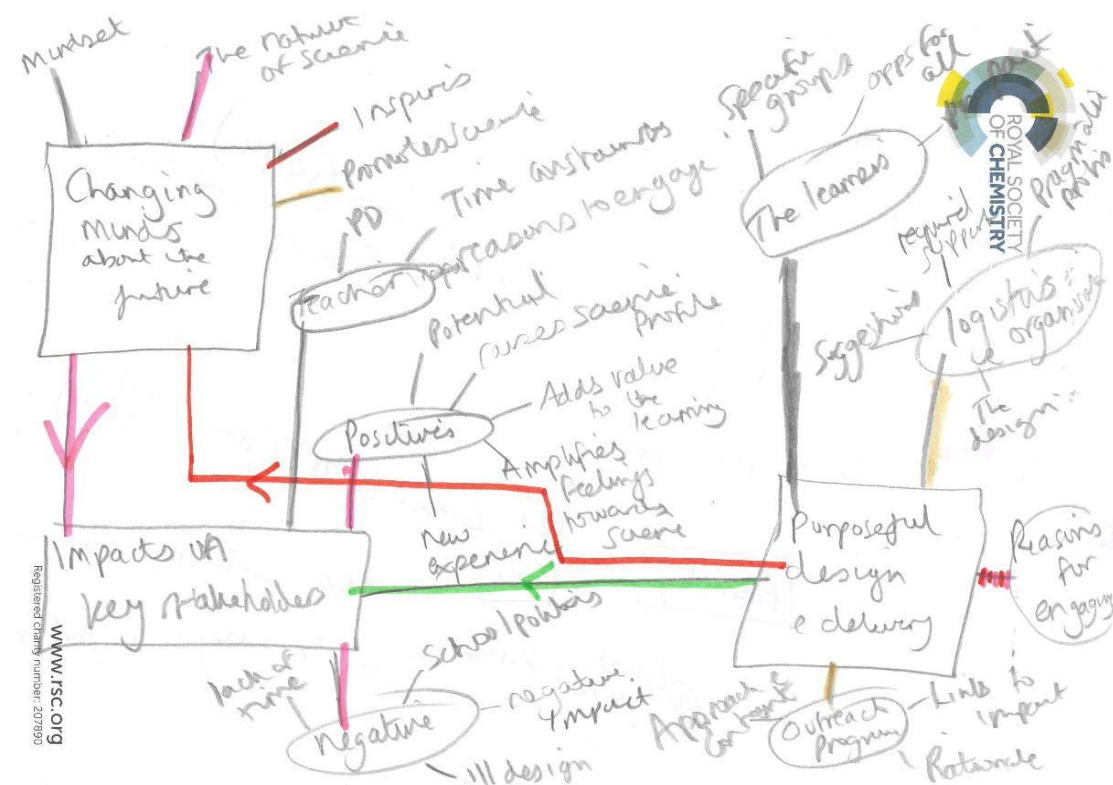 Mindset
The nature
of science
Inspires
Promotes science
Changing
Minds
about the
future
PD
Time constraints
reasons to engage
Teacher
Potential
raises science
profile
Adds value
to the
learning
Positives
Amplifies
feelings
towards
science
new
experience
Impacts on
key stakeholders
School politics
lack of
time
negative
impact
Negative
Ill design
Specific
groups
opps for
all
The learners
ROYAL SOCIETY
OF CHEMISTRY
required
support
logistics
The
design
Purposeful
design
e delivery
Reasons
for
engaging
Approach &
Outreach
program
Links to
impact
Rationale
www.rsc.org
Registered charity number: 207890